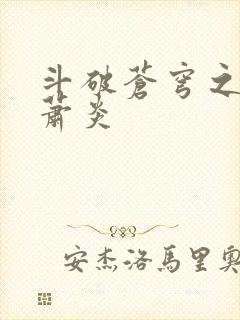 斗破蒼穹之
蕭炎
安杰洛馬里奧